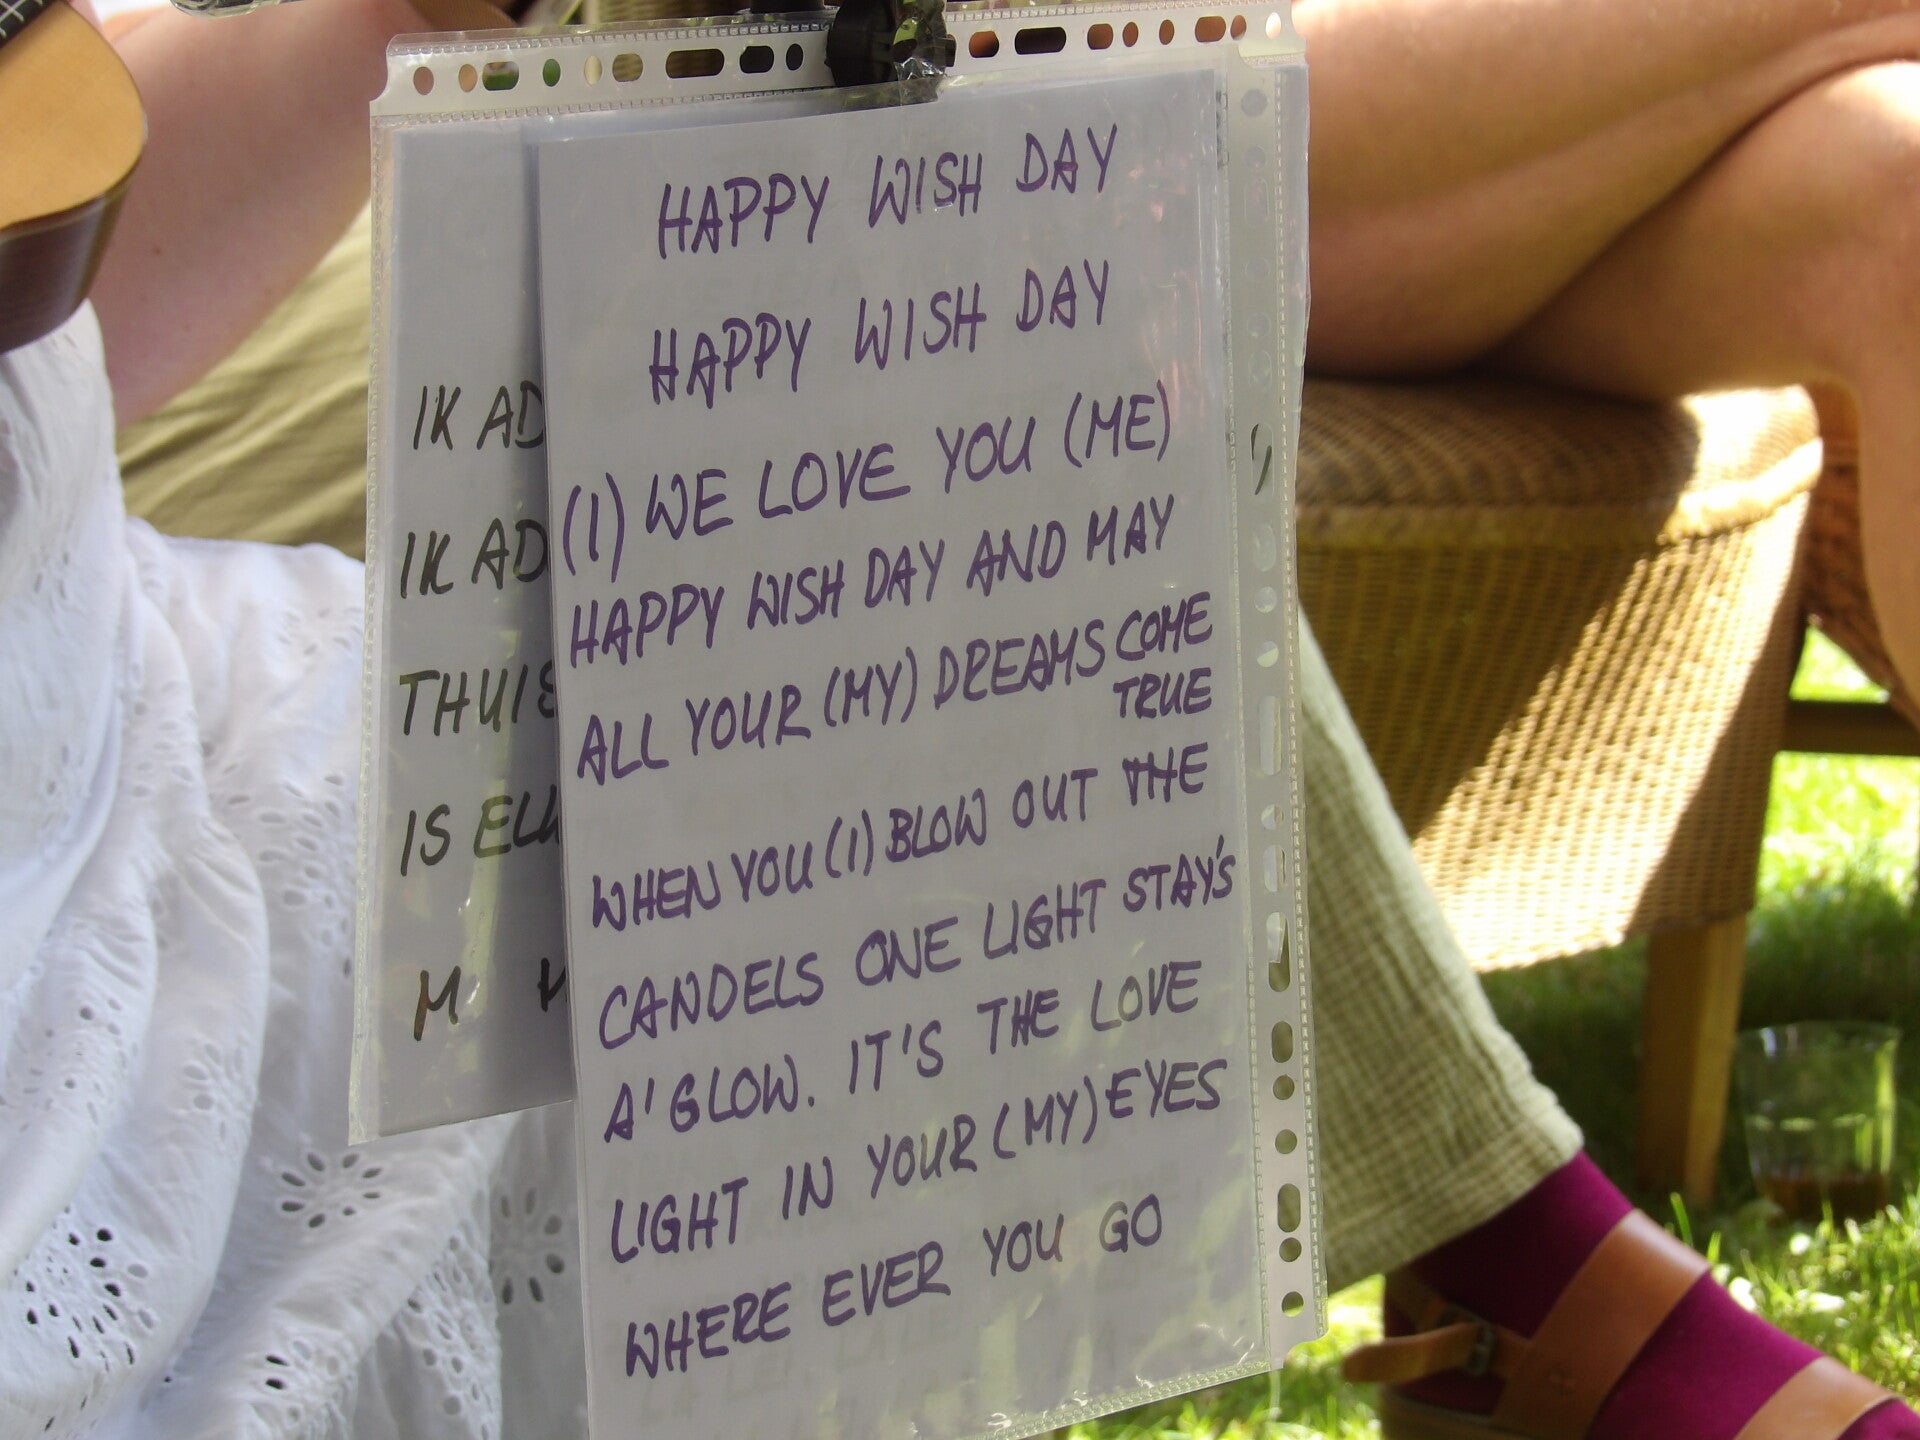 HAPPY WISH DAY
HAPPY WISH DAY
(I) WE LOVE YOU (ME)
HAPPY WISH DAY AND MAY
ALL YOUR (MY) DREAMS COME
TRUE
WHEN YOU (I) BLOW OUT THE
CANDELS ONE LIGHT STAY'S
A'GLOW. IT'S THE LOVE
LIGHT IN YOUR (MY) EYES
WHERE EVER YOU GO
IK AD
IK AD
THUIS
IS
M